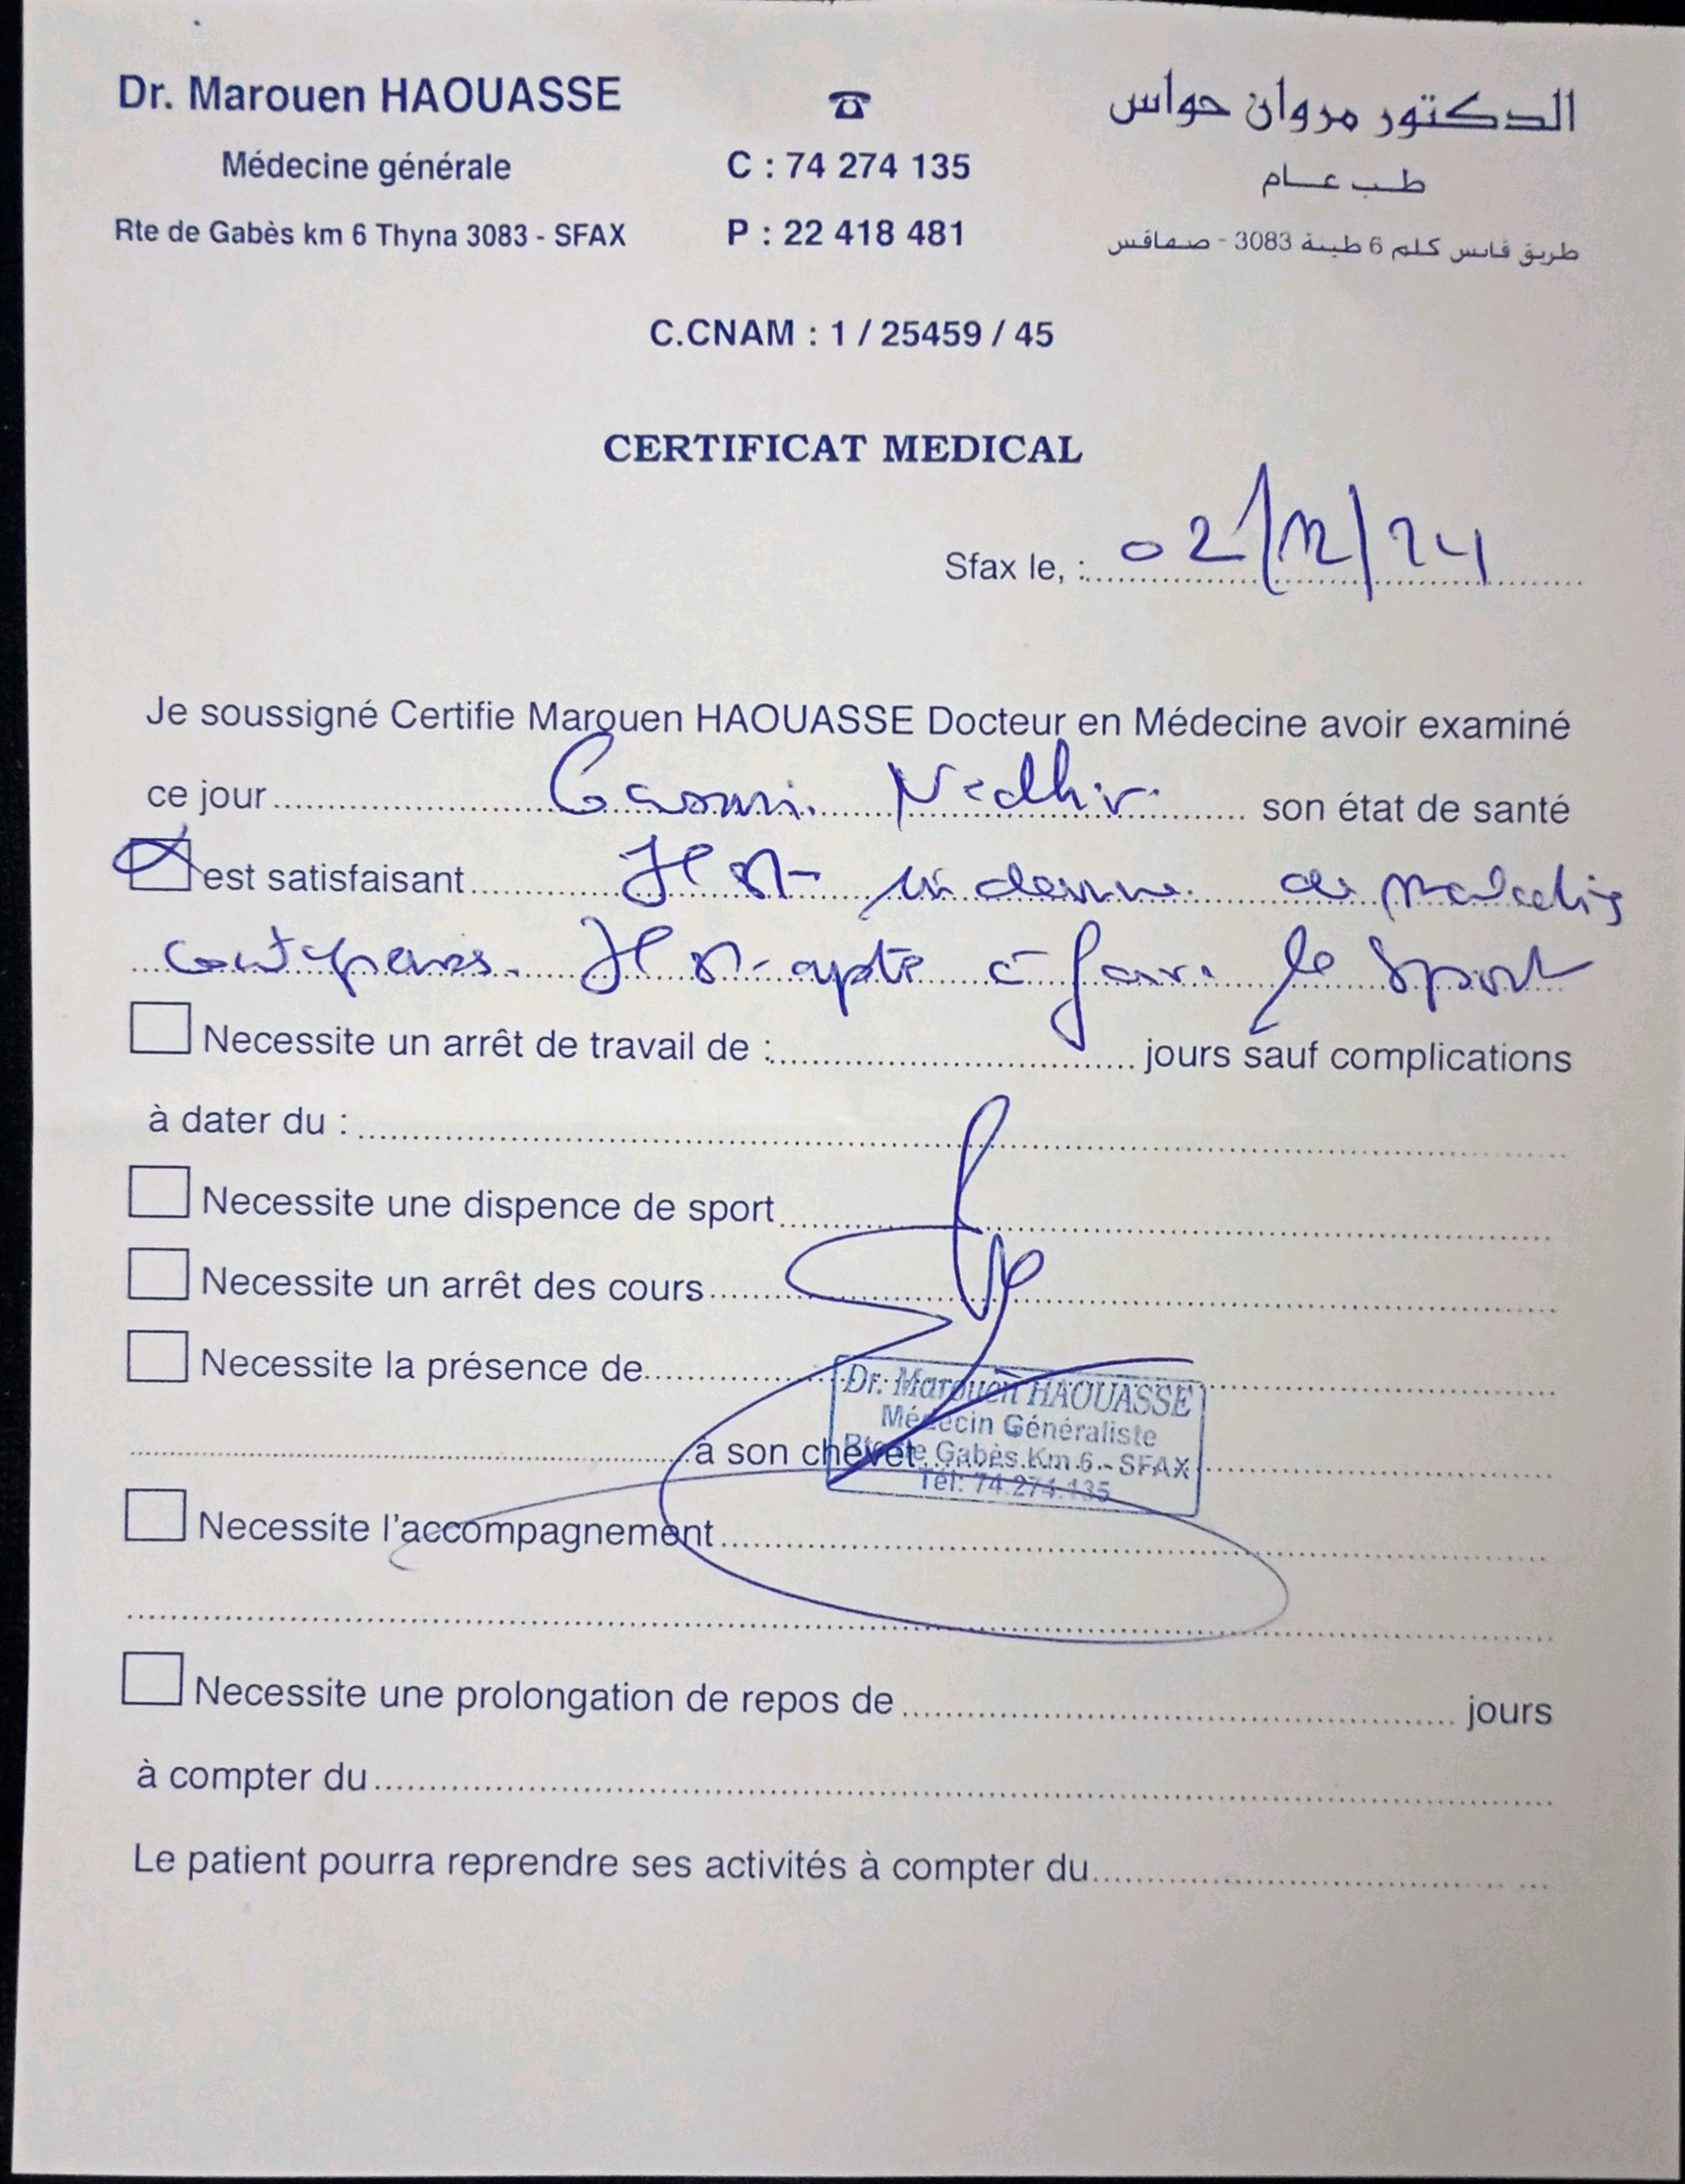 Dr. Marouen HAOUASSE
Médecine générale
Rte de Gabès km 6 Thyna 3083 - SFAX
☎
C : 74 274 135
P : 22 418 481
الدكتور مروان حواس
طب عام
طريق قابس كلم 6 طينة 3083 - صفاقس
C.CNAM : 1 / 25459 / 45
CERTIFICAT MEDICAL
Sfax le, : 02/12/24
Je soussigné Certifie Marouen HAOUASSE Docteur en Médecine avoir examiné
ce jour Nedhir son état de santé
est satisfaisant Il est indemne de maladies
contagieuses. Il est apte à faire le sport
Necessite un arrêt de travail de : jours sauf complications
à dater du :
Necessite une dispence de sport
Necessite un arrêt des cours
Necessite la présence de
à son chevet
Dr. Marouen HAOUASSE
Médecin Généraliste
Rte de Gabès Km 6 - SFAX
Tél: 74 274 135
Necessite l'accompagnement
Necessite une prolongation de repos de jours
à compter du
Le patient pourra reprendre ses activités à compter du